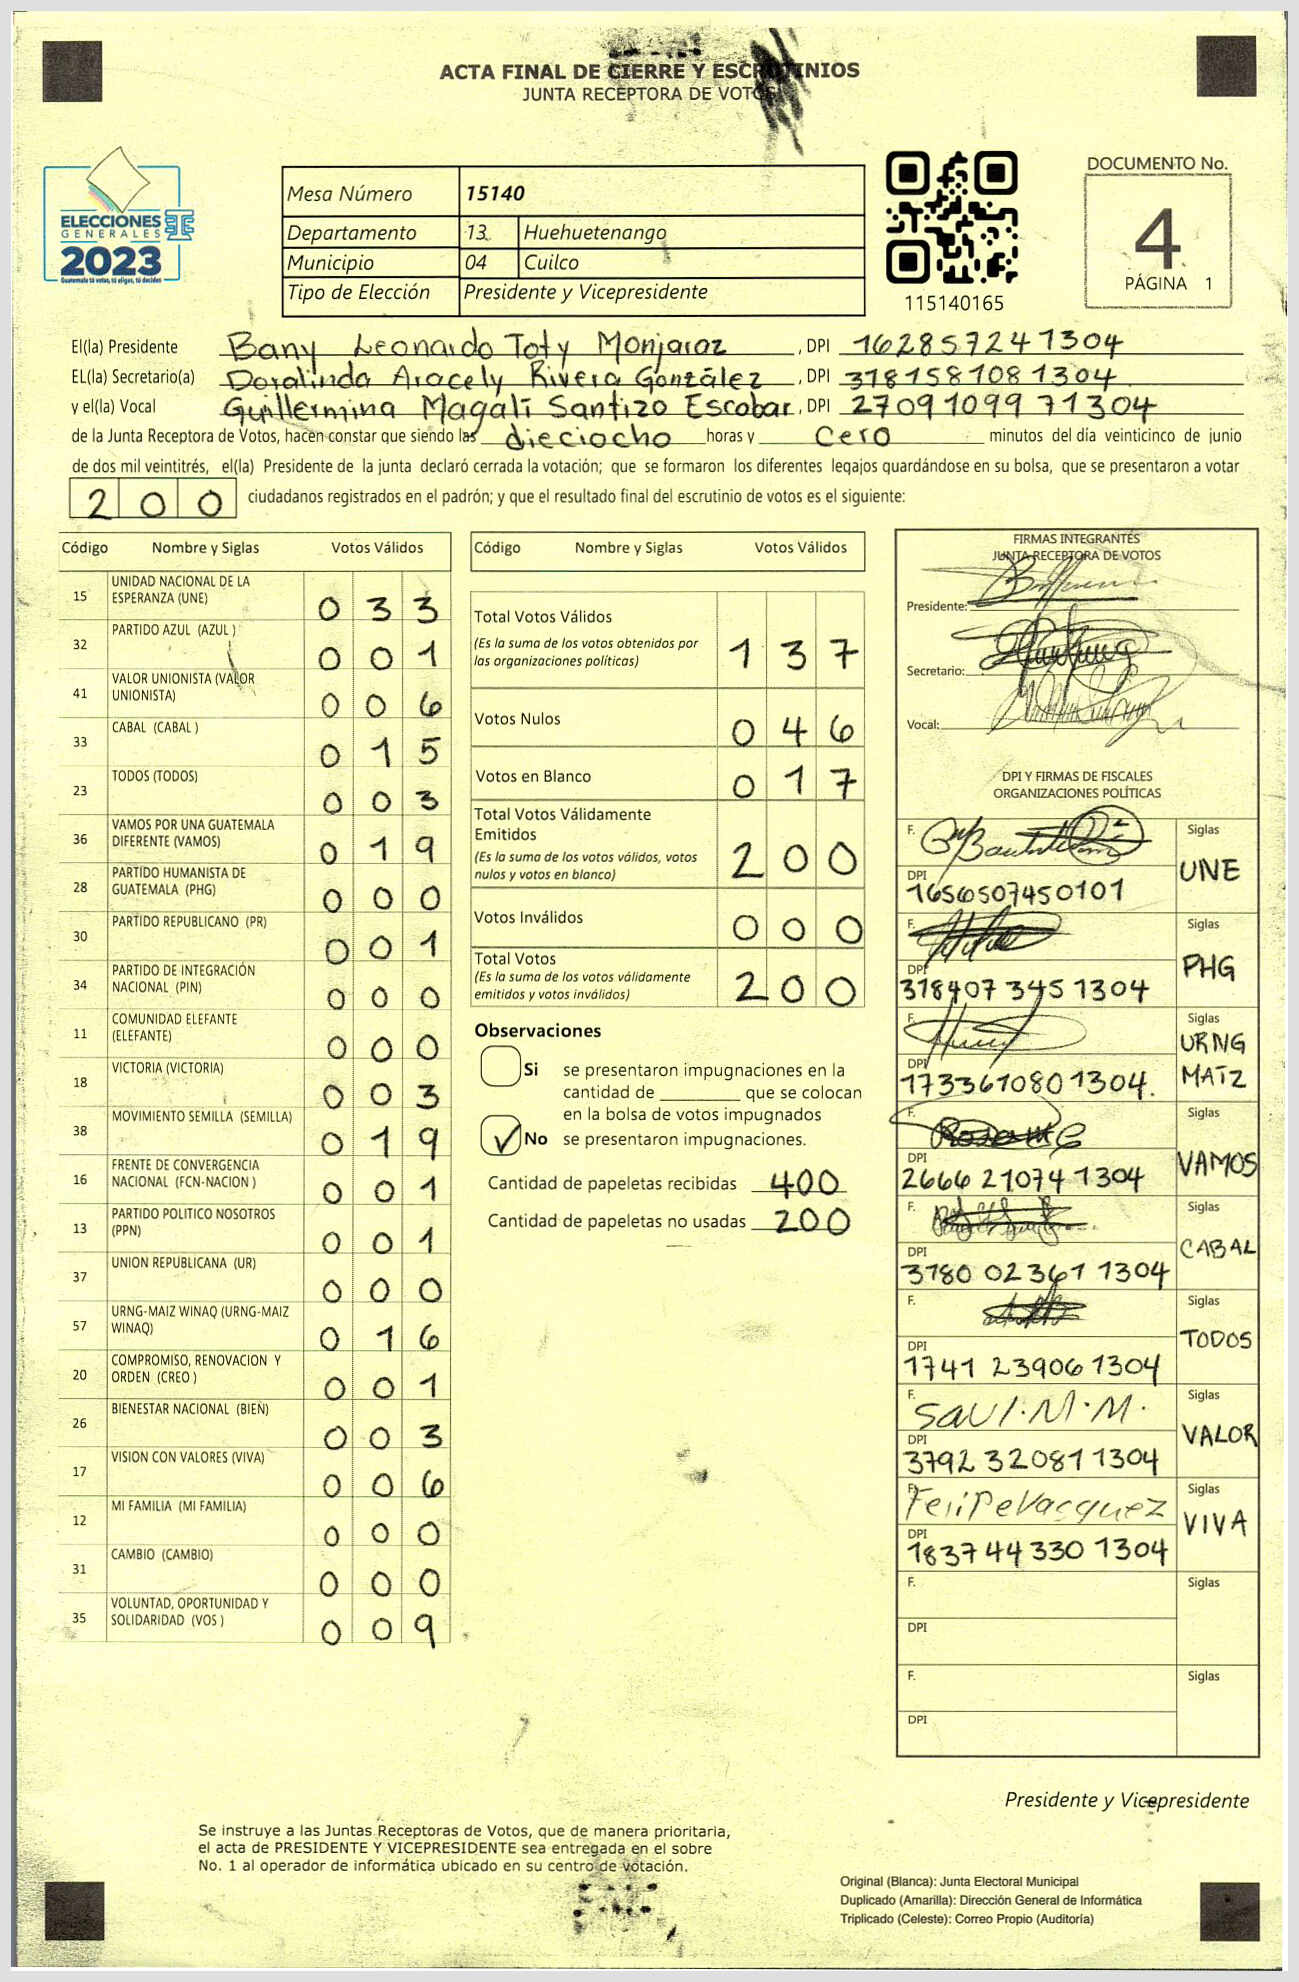 ACTA FINAL DE CIERRE Y ESCRUTINIOS
JUNTA RECEPTORA DE VOTOS
ELECCIONES
GENERALES
2023
Guatemala tú votas, tú eliges, tú decides
Mesa Número 15140
Departamento 13 Huehuetenango
Municipio 04 Cuilco
Tipo de Elección Presidente y Vicepresidente
115140165
DOCUMENTO No.
4
PÁGINA 1
El(la) Presidente Bany Leonardo Toty Monjaraz, DPI 1628572471304
EL(la) Secretario(a) Doralinda Aracely Rivera González, DPI 3181581081304
y el(la) Vocal Guillermina Magalí Santizo Escobar, DPI 2709109971304
de la Junta Receptora de Votos, hacen constar que siendo las dieciocho horas y cero minutos del día veinticinco de junio
de dos mil veintitrés, el(la) Presidente de la junta declaró cerrada la votación; que se formaron los diferentes legajos guardándose en su bolsa, que se presentaron a votar
200 ciudadanos registrados en el padrón; y que el resultado final del escrutinio de votos es el siguiente:
Código Nombre y Siglas Votos Válidos
15 UNIDAD NACIONAL DE LA ESPERANZA (UNE) 033
32 PARTIDO AZUL (AZUL ) 001
41 VALOR UNIONISTA (VALOR UNIONISTA) 006
33 CABAL (CABAL ) 015
23 TODOS (TODOS) 003
36 VAMOS POR UNA GUATEMALA DIFERENTE (VAMOS) 019
28 PARTIDO HUMANISTA DE GUATEMALA (PHG) 000
30 PARTIDO REPUBLICANO (PR) 001
34 PARTIDO DE INTEGRACIÓN NACIONAL (PIN) 000
11 COMUNIDAD ELEFANTE (ELEFANTE) 000
18 VICTORIA (VICTORIA) 003
38 MOVIMIENTO SEMILLA (SEMILLA) 019
16 FRENTE DE CONVERGENCIA NACIONAL (FCN-NACION ) 001
13 PARTIDO POLITICO NOSOTROS (PPN) 001
37 UNION REPUBLICANA (UR) 000
57 URNG-MAIZ WINAQ (URNG-MAIZ WINAQ) 016
20 COMPROMISO, RENOVACION Y ORDEN (CREO ) 001
26 BIENESTAR NACIONAL (BIEN) 003
17 VISION CON VALORES (VIVA) 006
12 MI FAMILIA (MI FAMILIA) 000
31 CAMBIO (CAMBIO) 000
35 VOLUNTAD, OPORTUNIDAD Y SOLIDARIDAD (VOS ) 009
Código Nombre y Siglas Votos Válidos
Total Votos Válidos 137
(Es la suma de los votos obtenidos por
las organizaciones políticas)
Votos Nulos 046
Votos en Blanco 017
Total Votos Válidamente
Emitidos 200
(Es la suma de los votos válidos, votos
nulos y votos en blanco)
Votos Inválidos 000
Total Votos 200
(Es la suma de los votos válidamente
emitidos y votos inválidos)
Observaciones
Si se presentaron impugnaciones en la
cantidad de ________ que se colocan
en la bolsa de votos impugnados
No se presentaron impugnaciones.
Cantidad de papeletas recibidas 400
Cantidad de papeletas no usadas 200
FIRMAS INTEGRANTES
JUNTA RECEPTORA DE VOTOS
Presidente:
Secretario:
Vocal:
DPI Y FIRMAS DE FISCALES
ORGANIZACIONES POLÍTICAS
F. Siglas
DPI UNE
1656507450101
F. Siglas
DPI PHG
3184073451304
F. Siglas
DPI URNG MAIZ
1733610801304.
F. Siglas
DPI VAMOS
2666210741304
F. Siglas
DPI CABAL
3780023611304
F. Siglas
DPI TODOS
1741239061304
F. Saul.M.M. Siglas
DPI VALOR
3792320811304
F. Felipe Vasquez Siglas
DPI VIVA
1837443301304
F. Siglas
DPI
F. Siglas
DPI
Presidente y Vicepresidente
Se instruye a las Juntas Receptoras de Votos, que de manera prioritaria,
el acta de PRESIDENTE Y VICEPRESIDENTE sea entregada en el sobre
No. 1 al operador de informática ubicado en su centro de votación.
Original (Blanca): Junta Electoral Municipal
Duplicado (Amarilla): Dirección General de Informática
Triplicado (Celeste): Correo Propio (Auditoría)